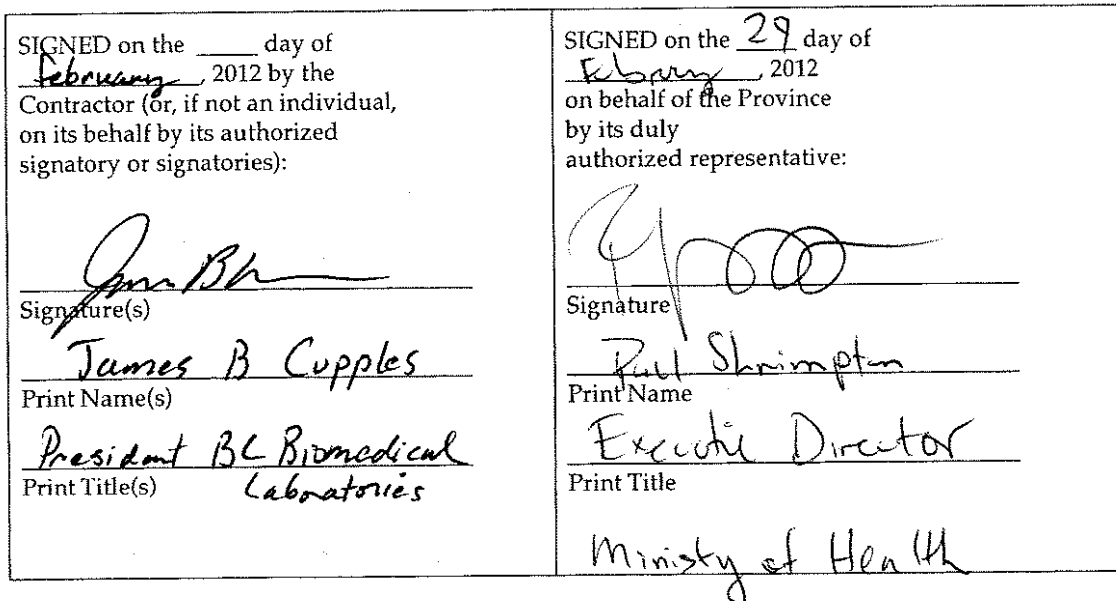 SIGNED on the _____ day of
February, 2012 by the
Contractor (or, if not an individual,
on its behalf by its authorized
signatory or signatories):
Signature(s)
James B Cupples
Print Name(s)
President BC Biomedical
Laboratories
Print Title(s)
SIGNED on the 29 day of
February, 2012
on behalf of the Province
by its duly
authorized representative:
Signature
Paul Shrimpton
Print Name
Executie Director
Print Title
Ministy of Health